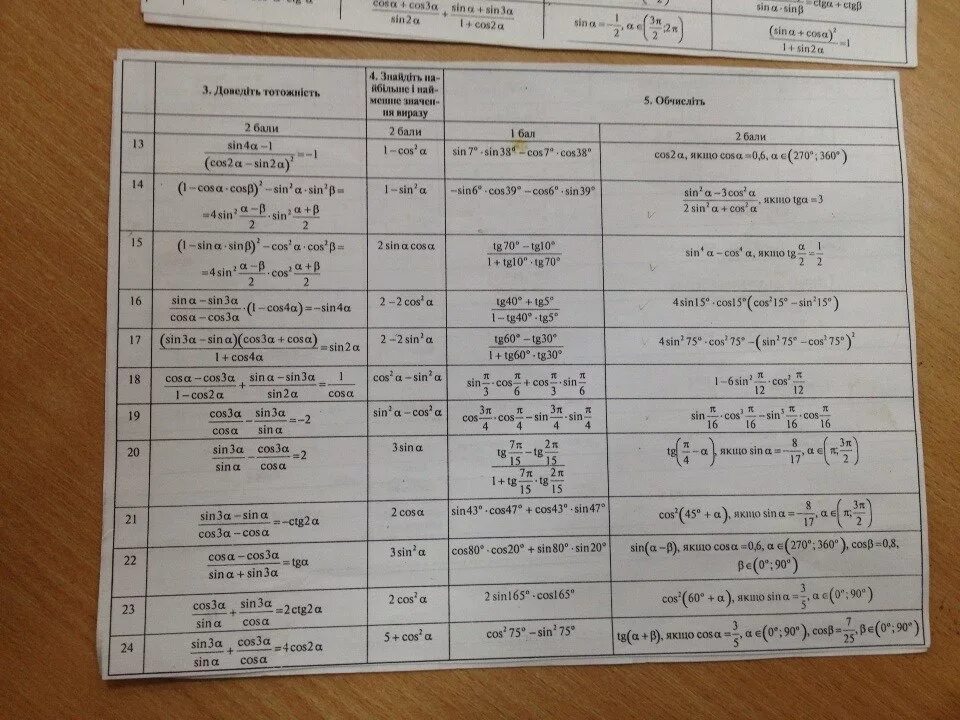 cosα + cos3α / sin2α + sinα + sin3α / 1 + cos2α
sinα = −1/2, α ∈ (3π/2; 2π)
sinα · sinβ = ctgα + ctgβ
(sinα + cosα)² / 1 + sin2α = 1
3. Доведіть тотожність
4. Знайдіть найбільше і найменше значення виразу
5. Обчисліть
2 бали 2 бали 1 бал 2 бали
13 (sin4α − 1)/(cos2α − sin2α)² = −1 1 − cos²α sin7° · sin38° − cos7° · cos38° cos2α, якщо cosα = 0,6, α ∈ (270°; 360°)
14 (1 − cosα · cosβ)² − sin²α · sin²β = 1 − sin²α −sin6° · cos39° − cos6° · sin39° (sin²α − 3cos²α)/(2sin²α + cos²α), якщо tgα = 3
= 4sin² (α − β)/2 · sin² (α + β)/2
15 (1 − sinα · sinβ)² − cos²α · cos²β = 2sinα cosα (tg70° − tg10°)/(1 + tg10° · tg70°) sin⁴α − cos⁴α, якщо tg α/2 = 1/2
= 4sin² (α − β)/2 · cos² (α + β)/2
16 (sinα − sin3α)/(cosα − cos3α) · (1 − cos4α) = −sin4α 2 − 2cos²α (tg40° + tg5°)/(1 − tg40° · tg5°) 4sin15° · cos15°(cos²15° − sin²15°)
17 (sin3α − sinα)(cos3α + cosα)/(1 + cos4α) = sin2α 2 − 2sin²α (tg60° − tg30°)/(1 + tg60° · tg30°) 4sin²75° · cos²75° − (sin²75° − cos²75°)²
18 (cosα − cos3α)/(1 − cos2α) + (sinα − sin3α)/sin2α = 1/cosα cos²α − sin²α sin π/3 · cos π/6 + cos π/3 · sin π/6 1 − 6sin² π/12 · cos² π/12
19 cos3α/cosα − sin3α/sinα = −2 sin²α − cos²α cos 3π/4 · cos π/4 − sin 3π/4 · sin π/4 sin π/16 · cos³ π/16 − sin³ π/16 · cos π/16
20 sin3α/sinα − cos3α/cosα = 2 3sinα (tg 7π/15 − tg 2π/15)/(1 + tg 7π/15 · tg 2π/15) tg(π/4 − α), якщо sinα = −8/17, α ∈ (π; 3π/2)
21 (sin3α − sinα)/(cos3α − cosα) = −ctg2α 2cosα sin43° · cos47° + cos43° · sin47° cos²(45° + α), якщо sinα = −8/17, α ∈ (π; 3π/2)
22 (cosα − cos3α)/(sinα + sin3α) = tgα 3sin²α cos80° · cos20° + sin80° · sin20° sin(α − β), якщо cosα = 0,6, α ∈ (270°; 360°), cosβ = 0,8,
β ∈ (0°; 90°)
23 cos3α/sinα + sin3α/cosα = 2ctg2α 2cos²α 2sin165° · cos165° cos²(60° + α), якщо sinα = 3/5, α ∈ (0°; 90°)
24 sin3α/sinα + cos3α/cosα = 4cos2α 5 + cos²α cos²75° − sin²75° tg(α + β), якщо cosα = 3/5, α ∈ (0°; 90°), cosβ = 7/25, β ∈ (0°; 90°)